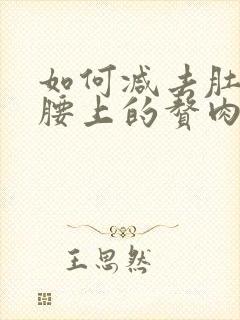 如何减去肚
腰上的赘肉
王思然